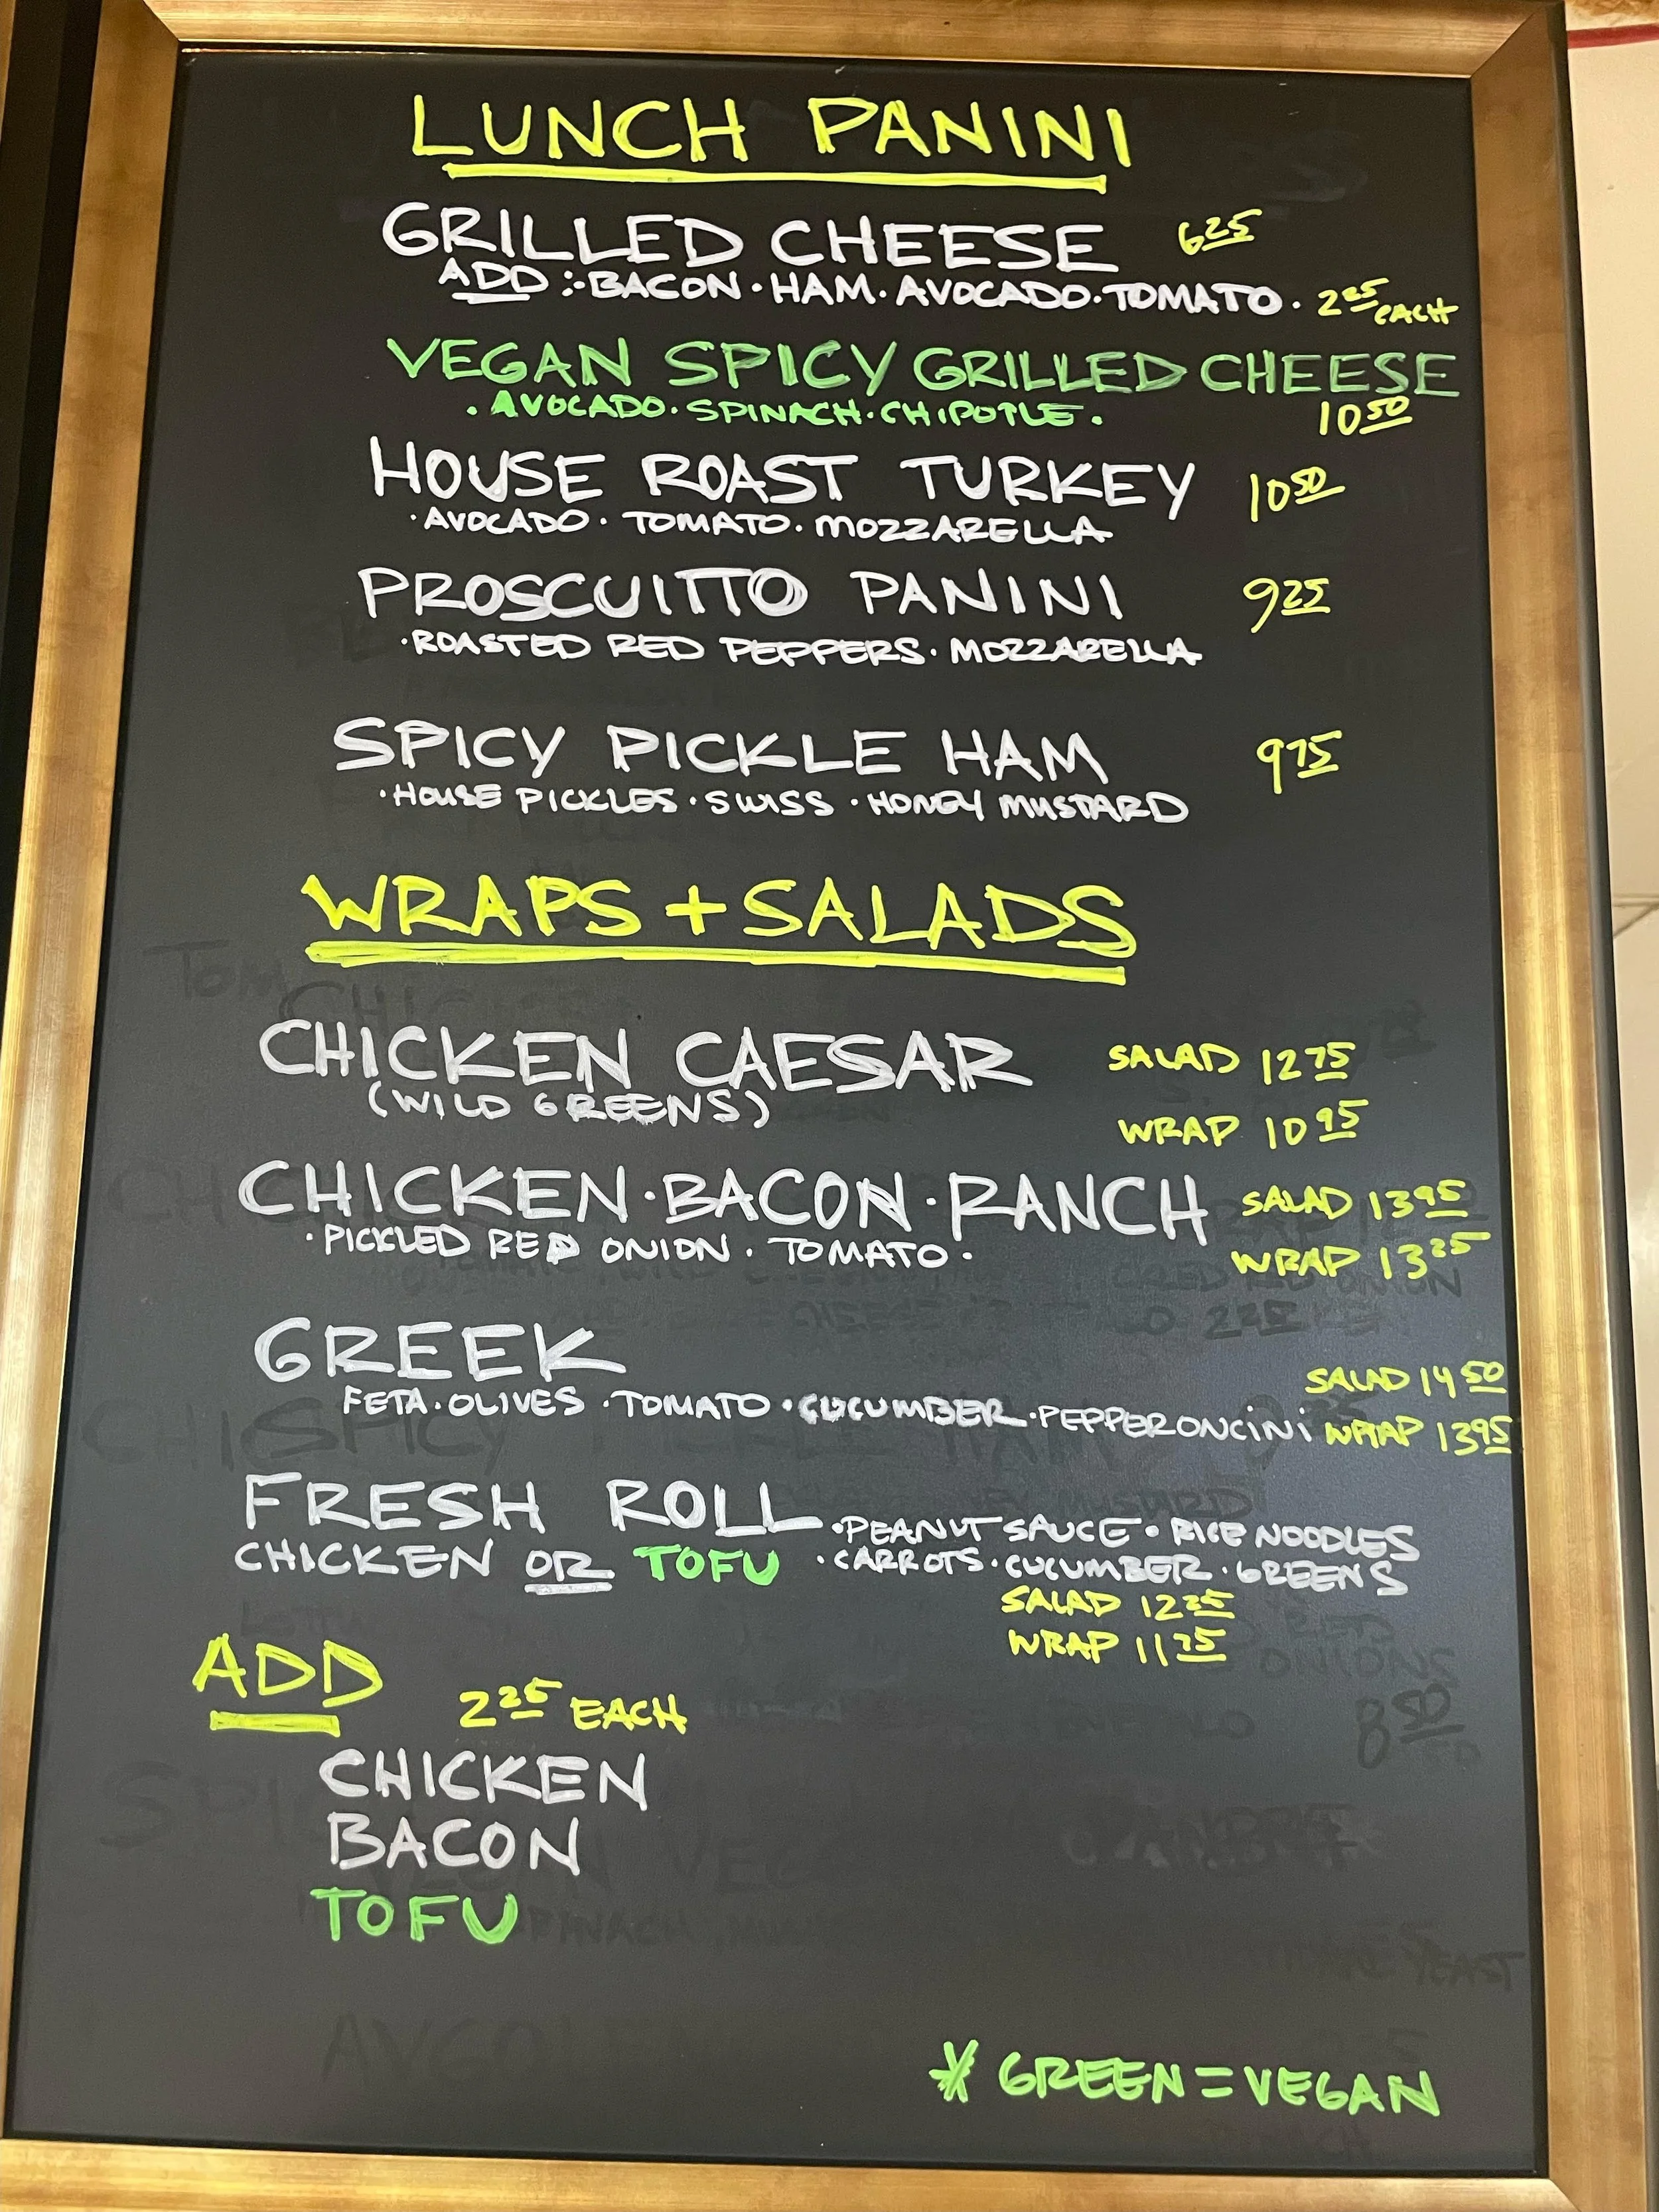 LUNCH PANINI
GRILLED CHEESE 6 25
ADD : · BACON · HAM · AVOCADO · TOMATO · 2 25 EACH
VEGAN SPICY GRILLED CHEESE
· AVOCADO · SPINACH · CHIPOTLE · 10 50
HOUSE ROAST TURKEY 10 50
· AVOCADO · TOMATO · MOZZARELLA
PROSCUITTO PANINI 9 25
· ROASTED RED PEPPERS · MOZZARELLA
SPICY PICKLE HAM 9 75
· HOUSE PICKLES · SWISS · HONEY MUSTARD
WRAPS + SALADS
CHICKEN CAESAR SALAD 12 75
(WILD GREENS) WRAP 10 95
CHICKEN · BACON · RANCH SALAD 13 95
· PICKLED RED ONION · TOMATO · WRAP 13 25
GREEK SALAD 14 50
FETA · OLIVES · TOMATO · CUCUMBER · PEPPERONCINI WRAP 13 95
FRESH ROLL · PEANUT SAUCE · RICE NOODLES
CHICKEN OR TOFU · CARROTS · CUCUMBER · GREENS
SALAD 12 25
WRAP 11 75
ADD 2 25 EACH
CHICKEN
BACON
TOFU
* GREEN = VEGAN